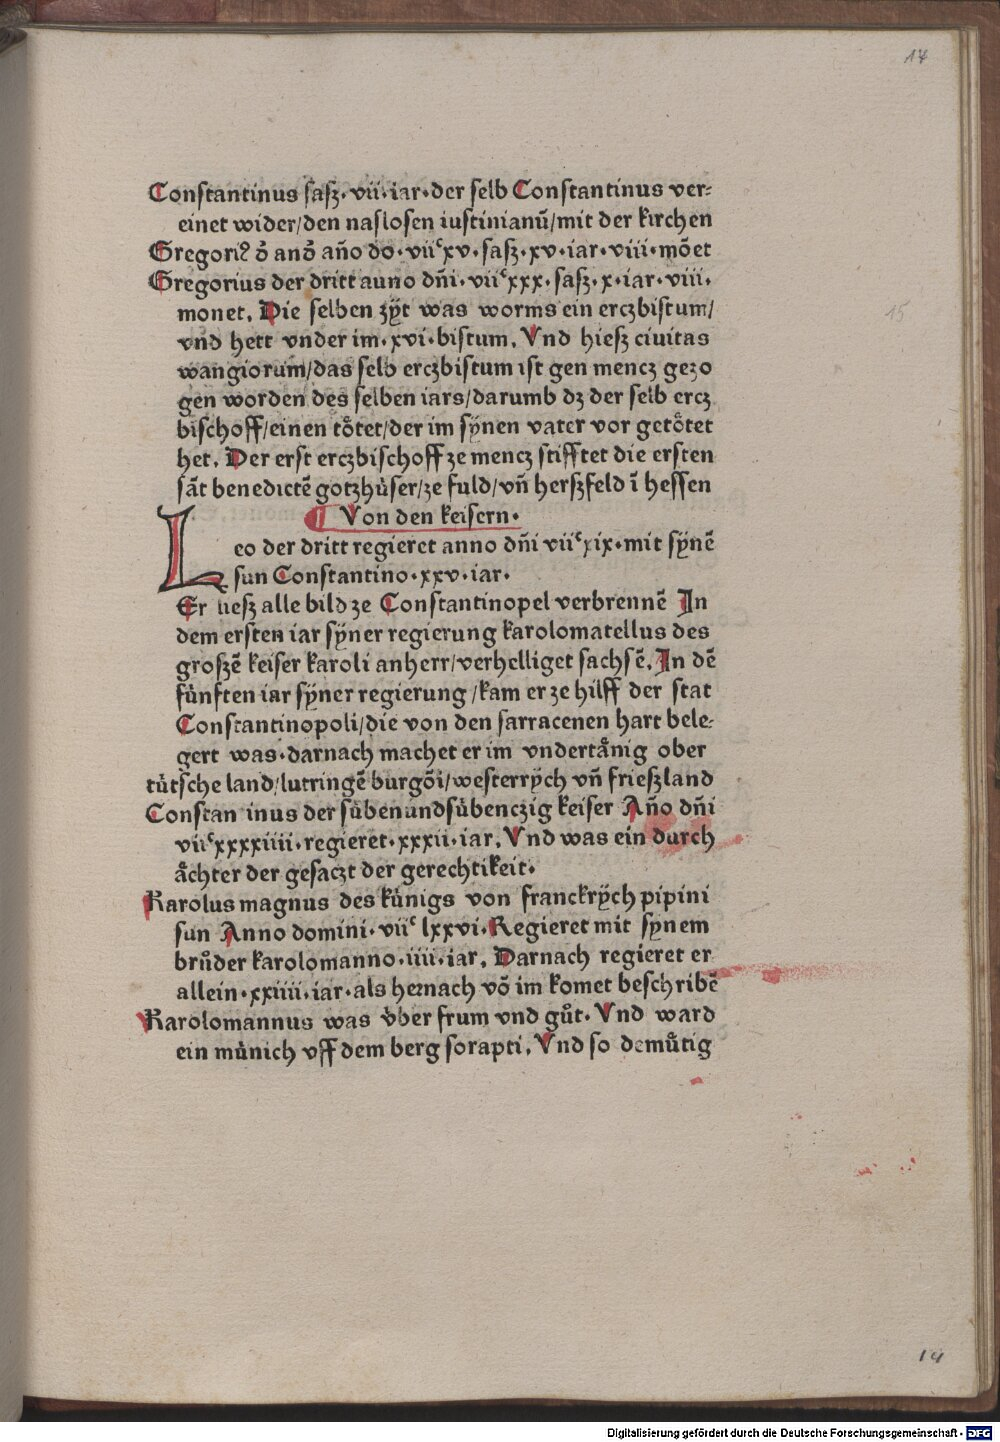 17
Constantinus ſaſʒ· vii· iar· der ſelb Conſtantinus ver⸗
einet wider/den naſloſen iuſtinianū/mit der kirchen
Gregoriꝰ ð anð año do· viiᶜxv· ſaſʒ· xv· iar· viii· mōet
Gregorius der dritt auno dñi· viiᶜxxx· ſaſʒ· x· iar· viii·
monet. Die ſelben zÿt was worms ein erczbiſtum/
vnd hett vnder im· xvi· biſtum. Vnd hieſʒ ciuitas
wangiorum/das ſelb erczbiſtum iſt gen mencz gezo
gen worden des ſelben iars/darumb dʒ der ſelb ercz
biſchoff/einen toͤtet/der im ſÿnen vater vor getoͤtet
het. Der erſt erczbiſchoff ze mencz ſtifftet die erſten
ſāt benedictē gotzhuͤſer/ze fuld/vñ herſʒfeld ī heſſen
¶ Von den keiſern·
15
Leo der dritt regieret anno dñi viiᶜxix· mit ſÿnē
ſun Conſtantino· xxv· iar·
Er lieſʒ alle bild ze Conſtantinopel verbrennē In
dem erſten iar ſÿner regierung karolomatellus des
groſʒē keiſer karoli anherr/verhelliget ſachſē. In dē
fuͤnften iar ſÿner regierung/kam er ze hilff der ſtat
Conſtantinopoli/die von den ſarracenen hart bele⸗
gert was· darnach machet er im vndertaͤnig ober
tuͤtſche land/lutringē burgōi/weſterrÿch vñ frieſʒland
Conſtan inus der ſuͤbenundſuͤbenczig keiſer Año dñi
viiᶜxxxxiiii· regieret· xxxii· iar. Vnd was ein durch
aͤchter der geſaczt der gerechtikeit·
Karolus magnus des kuͤnigs von franckrÿch pipini
ſun Anno domini· viiᶜ lxxvi· Regieret mit ſynem
bruͦder karolomanno· iiii· iar. Darnach regieret er
allein· xxiiii· iar· als hernach vō im komet beſchribē
Karolomannus was vͤber frum vnd guͦt· Vnd ward
ein muͤnich vff dem berg ſorapti. Vnd ſo demuͤtig
14
Digitalisierung gefördert durch die Deutsche Forschungsgemeinschaft · DFG